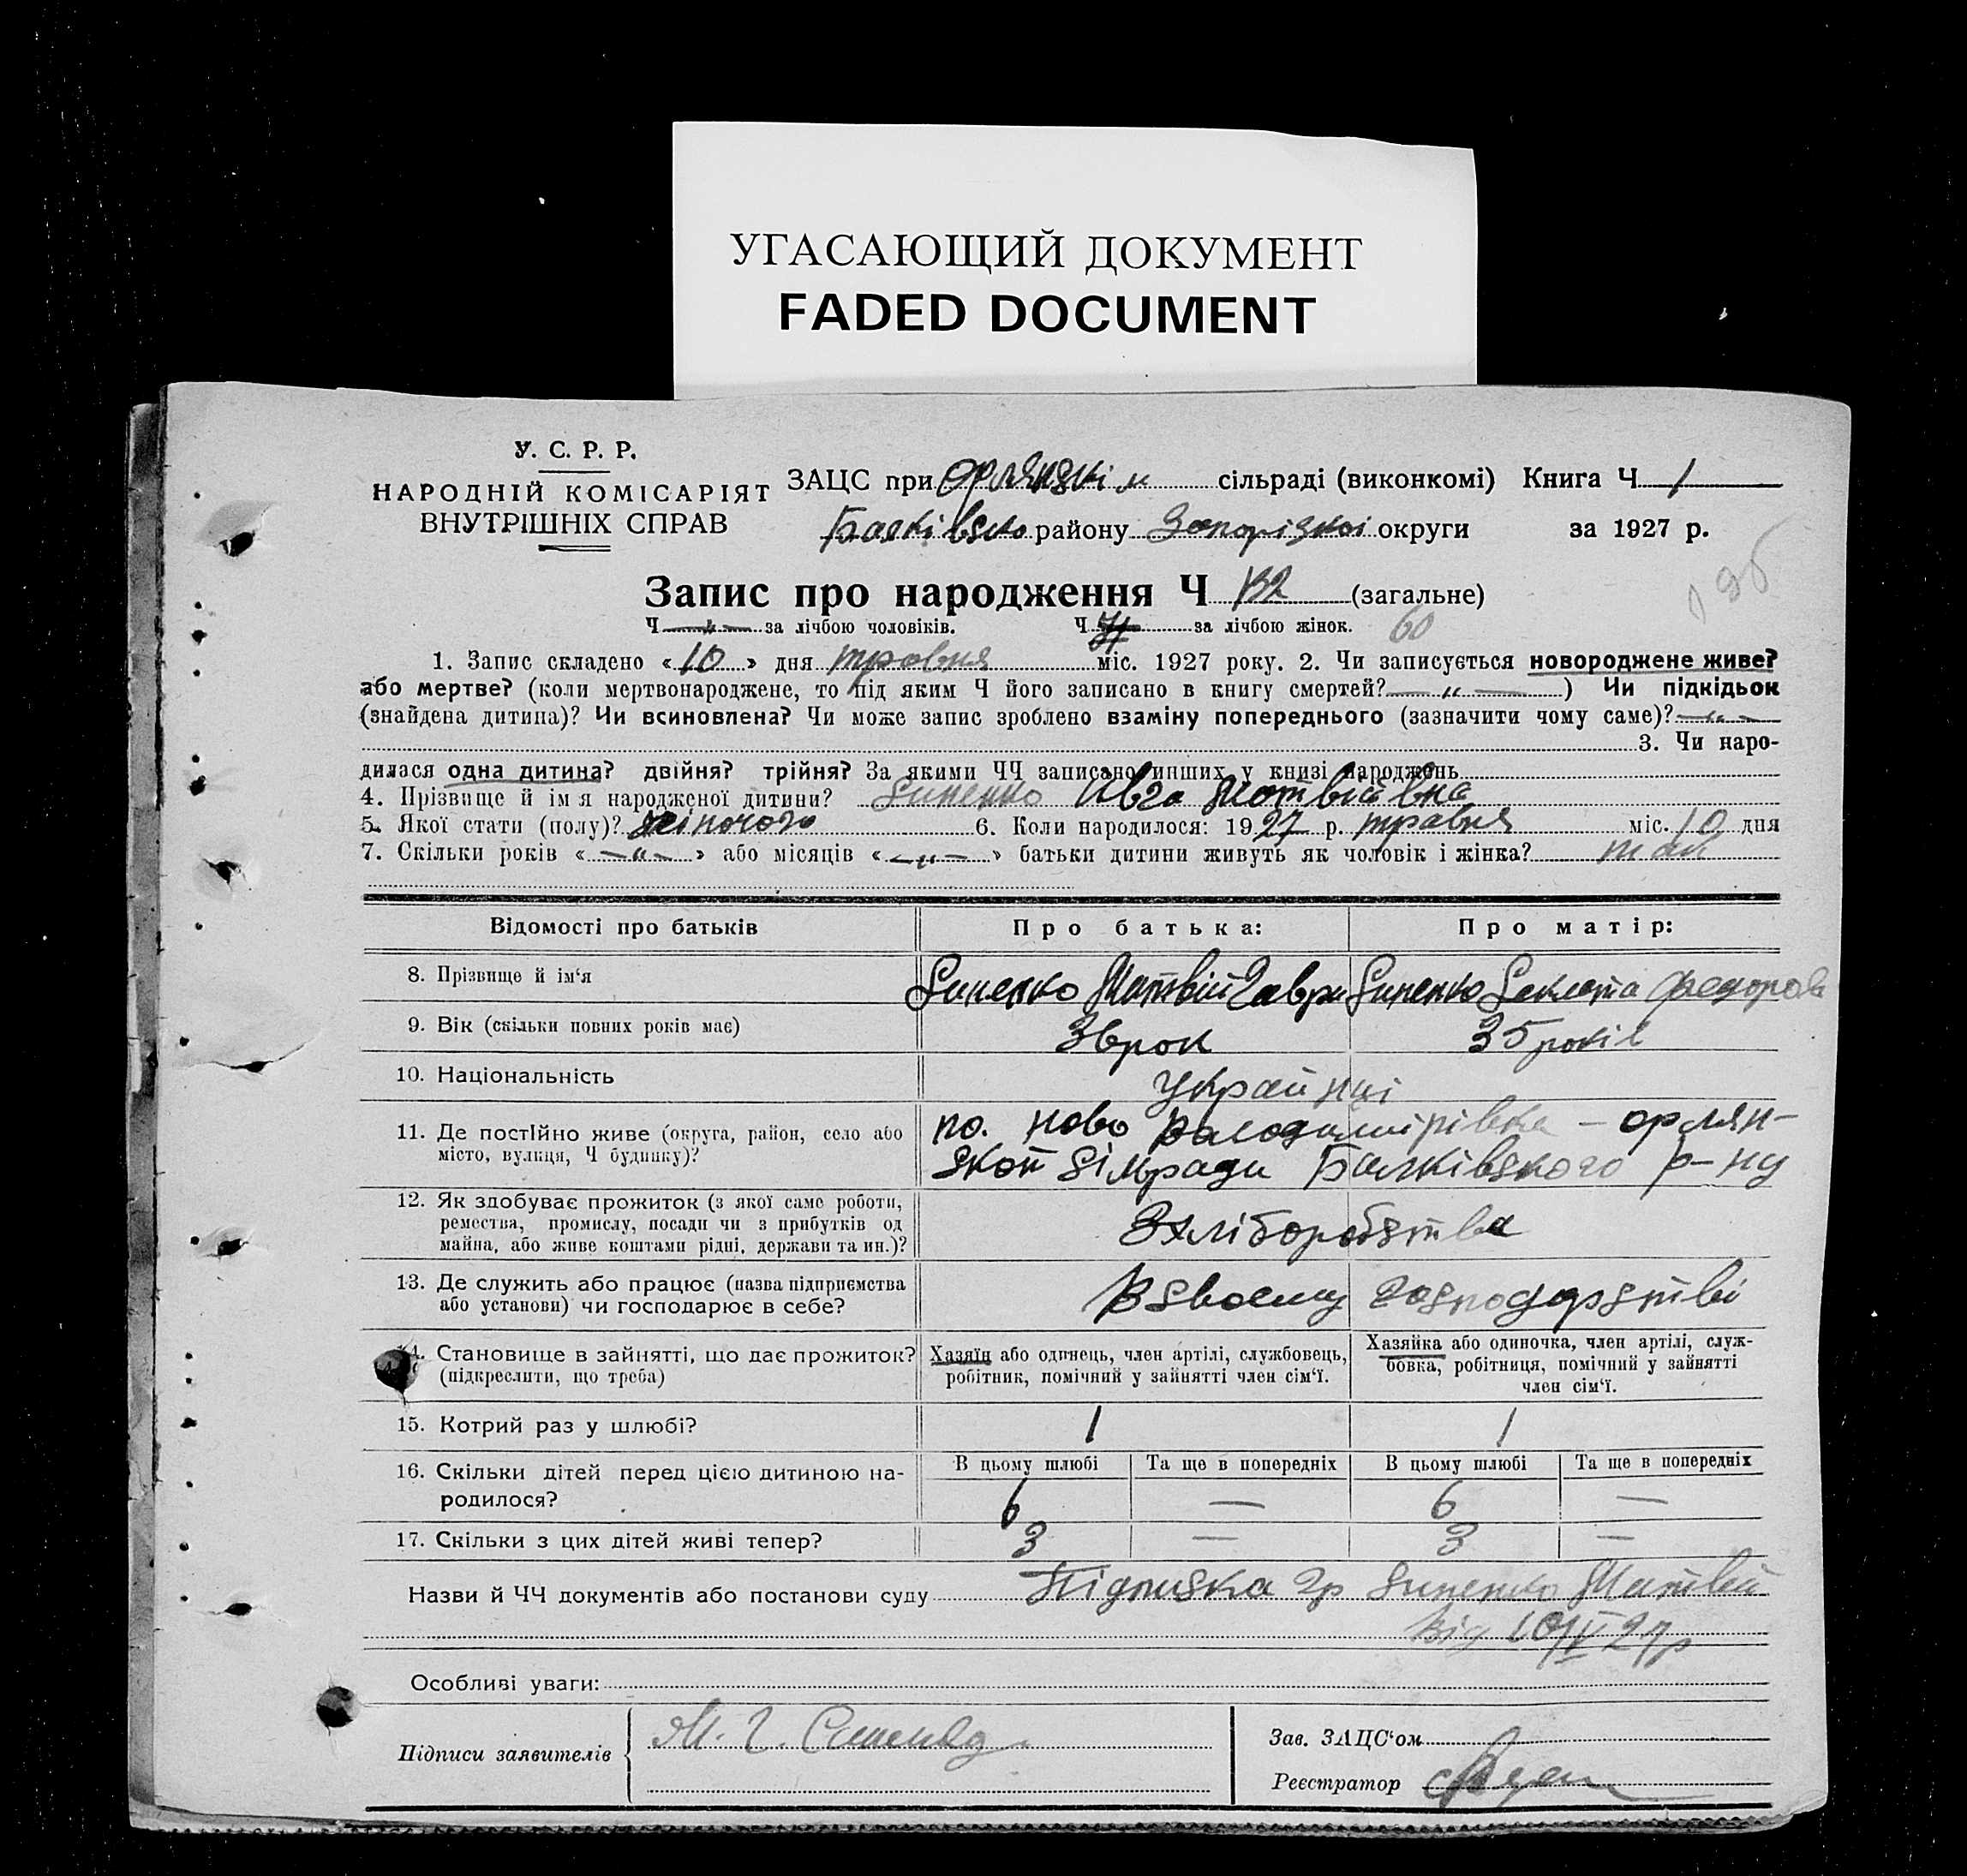 УГАСАЮЩИЙ ДОКУМЕНТ
FADED DOCUMENT
У. С. Р. Р.
НАРОДНІЙ КОМІСАРІЯТ
ВНУТРІШНІХ СПРАВ
ЗАЦС при Орлянскім сільраді (виконкомі) Книга Ч 1
Балківськ району Запорізкоі округи за 1927 р.
Запис про народження Ч 132 (загальне)
Ч —„— за лічбою чоловіків. Ч за лічбою жінок. 60
1. Запис складено « 10 » дня травня міс. 1927 року. 2. Чи записується новороджене живе?
або мертве? (коли мертвонароджене, то під яким Ч його записано в книгу смертей? —„— ) Чи підкідьок
(знайдена дитина)? Чи всиновлена? Чи може запис зроблено взаміну попереднього (зазначити чому саме)? —„—
3. Чи наро-
дилася одна дитина? двійня? трійня? За якими ЧЧ записано инших у книзі народжень
4. Прізвище й ім'я народженої дитини? Синенко Івга Мотвіівна
5. Якої стати (полу)? жіночого 6. Коли народилося: 1927 р. травня міс. 10 дня
7. Скільки років « —„— » або місяців « —„— » батьки дитини живуть як чоловік і жінка?
Відомості про батьків Про батька: Про матір:
8. Прізвище й ім'я Синенко Матвій Гаври Синенко Секлета Федоров
9. Вік (скільки повних років має) 36 рок 35 років
10. Національність Украйнці
11. Де постійно живе (округа, район, село або
місто, вулиця, Ч будинку)?
по. ново Володимірівка — орлян-
ской сільради Балківського р-ну
12. Як здобуває прожиток (з якої саме роботи,
ремества, промислу, посади чи з прибутків од
майна, або живе коштами рідні, держави та ин.)?
З хліборобства
13. Де служить або працює (назва підприємства
або установи) чи господарює в себе?
В своему господарстві
14. Становище в зайнятті, що дає прожиток?
(підкреслити, що треба)
Хазяїн або одинець, член артілі, службовець,
робітник, помічний у зайнятті член сім'ї.
Хазяйка або одиночка, член артілі, служ-
бовка, робітниця, помічний у зайнятті
член сім'ї.
15. Котрий раз у шлюбі? 1 1
16. Скільки дітей перед цією дитиною на-
родилося?
В цьому шлюбі Та ще в попередніх В цьому шлюбі Та ще в попередніх
6 — 6 —
17. Скільки з цих дітей живі тепер? 3 — 3 —
Назви й ЧЧ документів або постанови суду Підписка гр Синенко Матвій
від 10/V 27р
Особливі уваги:
Підписи заявителів М. Г.
Зав. ЗАЦС'ом
Реєстратор